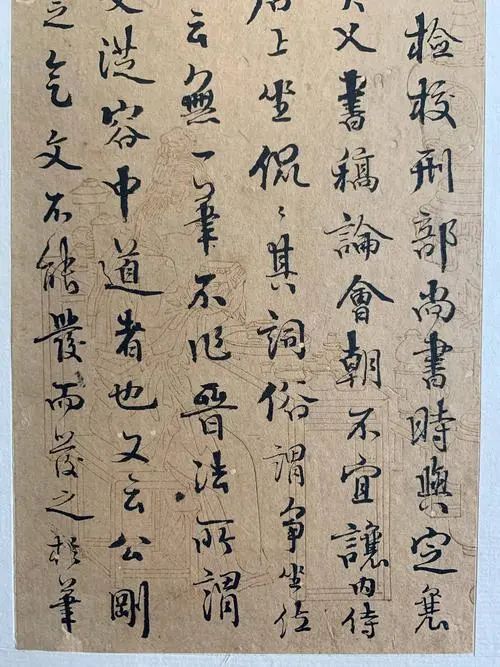 檢校刑部尚書時與定襄
父書稿論會朝不宜讓内侍
居上坐侃〻其詞俗謂争坐位
云無一筆不作晉法所謂
容中道者也又云公剛
之氣文不能發而發之於筆